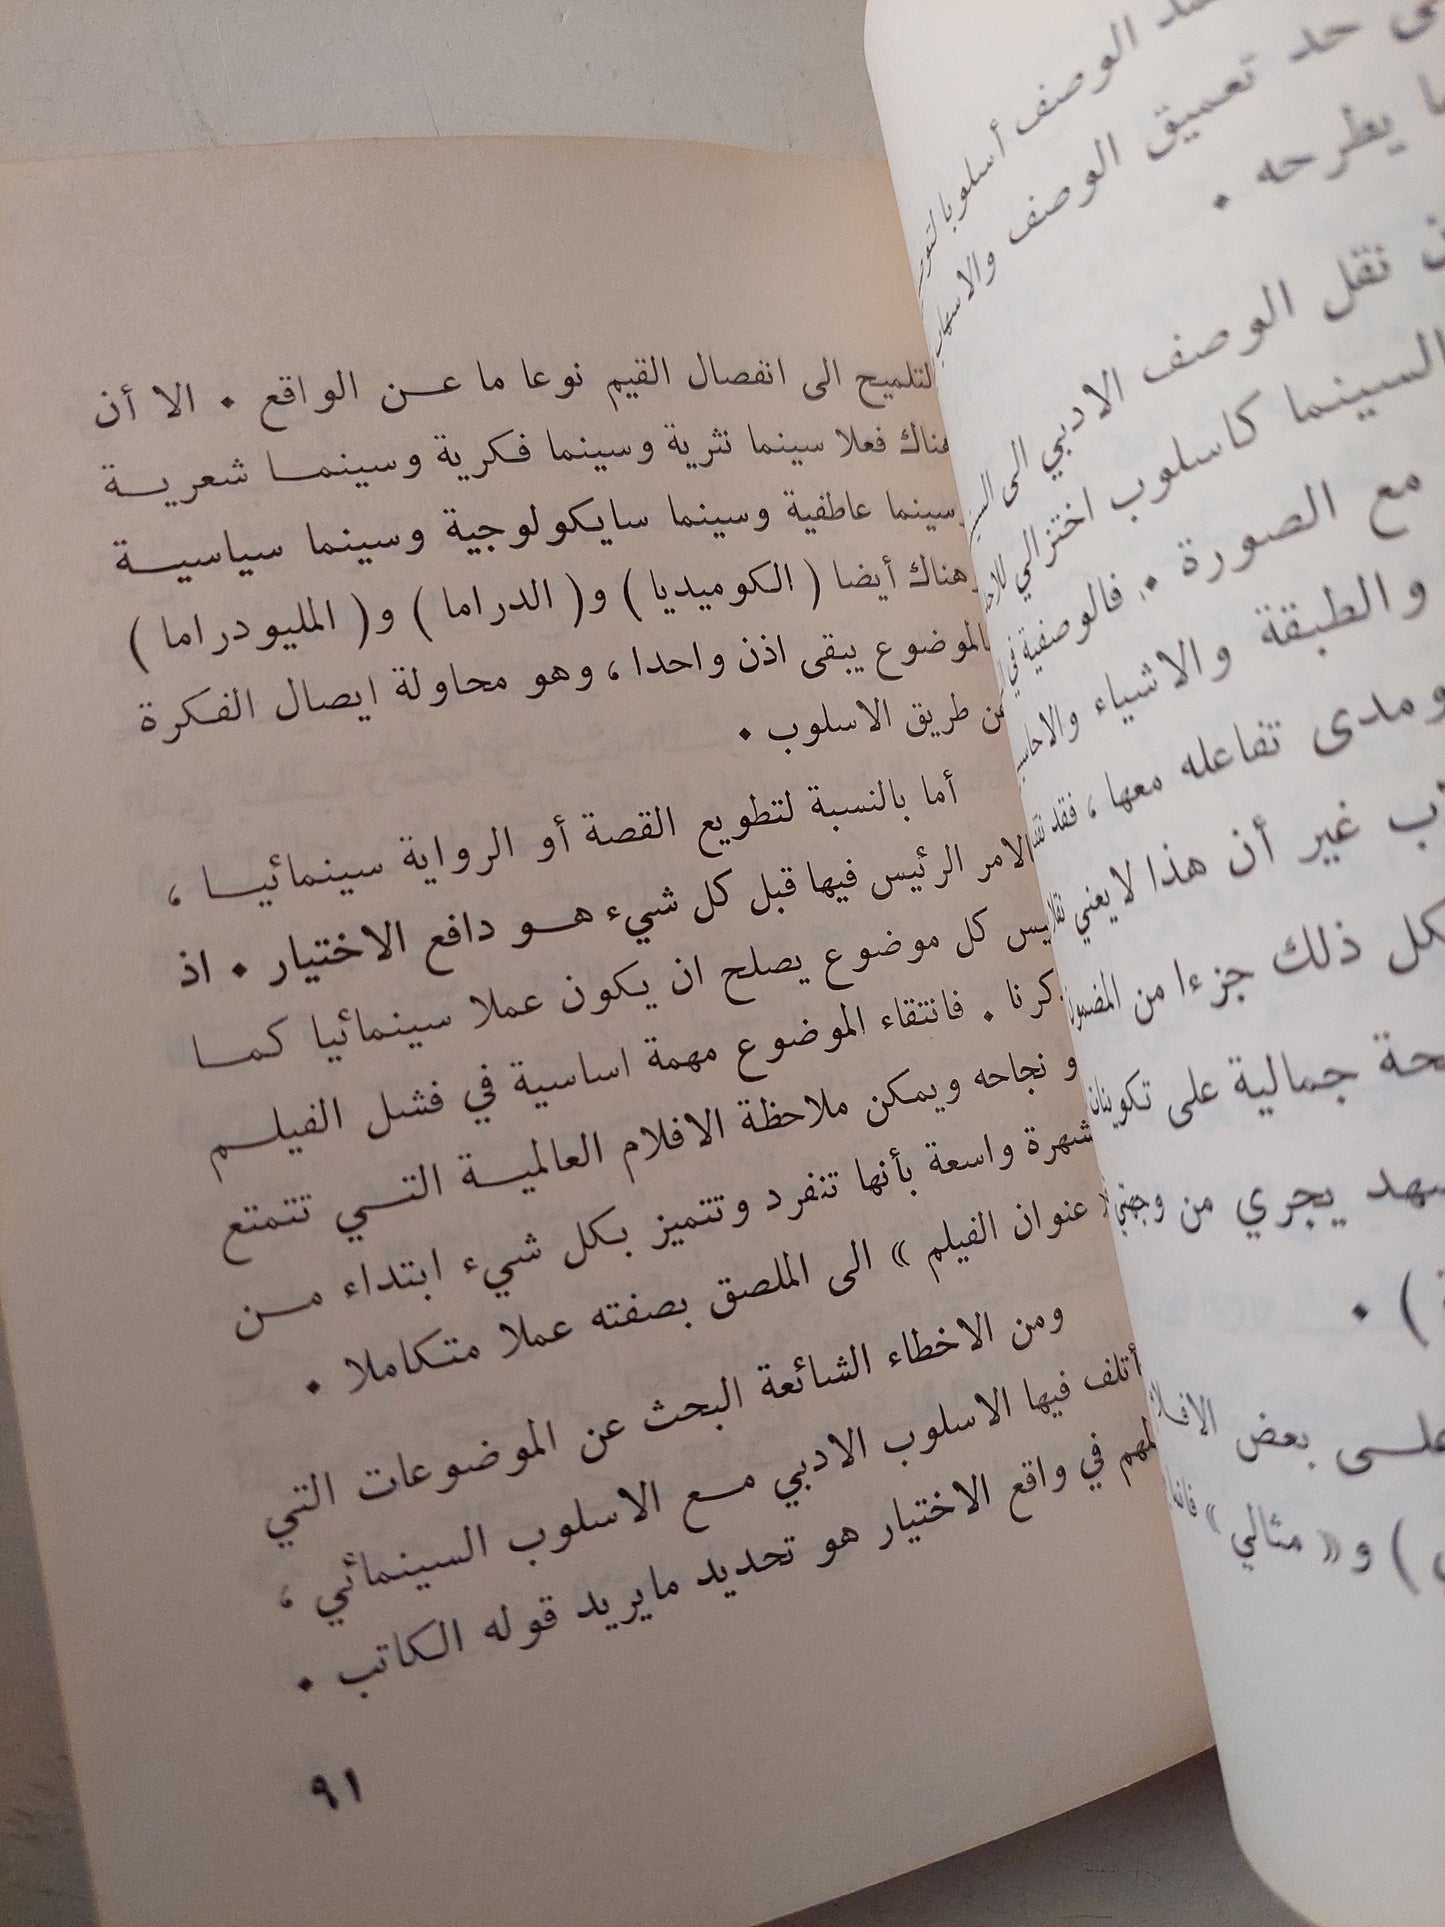 الوصف أسلوبا
حد تعميق الوصف
يطرحه .
نقل الوصف الادبي الى
السينما كاسلوب اختزالي
مع الصورة . فالوصفية في
والطبقة والاشياء
ومدى تفاعله معها ، فقد
غير أن هذا لا يعني
كل ذلك جزءا من
جمالية على
يجري من
) .
بعض
) و « مثالي »
لتلميح الى انفصال القيم نوعا ما عن الواقع . الا أن
هناك فعلا سينما نثرية وسينما فكرية وسينما شعرية
وسينما عاطفية وسينما سايكولوجية وسينما سياسية
وهناك أيضا ( الكوميديا ) و( الدراما ) و( المليودراما )
الموضوع يبقى اذن واحدا ، وهو محاولة ايصال الفكرة
عن طريق الاسلوب .
أما بالنسبة لتطويع القصة أو الرواية سينمائيا ،
الامر الرئيس فيها قبل كل شيء هو دافع الاختيار . اذ
ليس كل موضوع يصلح ان يكون عملا سينمائيا كما
ذكرنا . فانتقاء الموضوع مهمة اساسية في فشل الفيلم
و نجاحه ويمكن ملاحظة الافلام العالمية التي تتمتع
شهرة واسعة بأنها تنفرد وتتميز بكل شيء ابتداء من
عنوان الفيلم » الى الملصق بصفته عملا متكاملا .
ومن الاخطاء الشائعة البحث عن الموضوعات التي
أتلف فيها الاسلوب الادبي مع الاسلوب السينمائي ،
لمهم في واقع الاختيار هو تحديد مايريد قوله الكاتب .
٩١